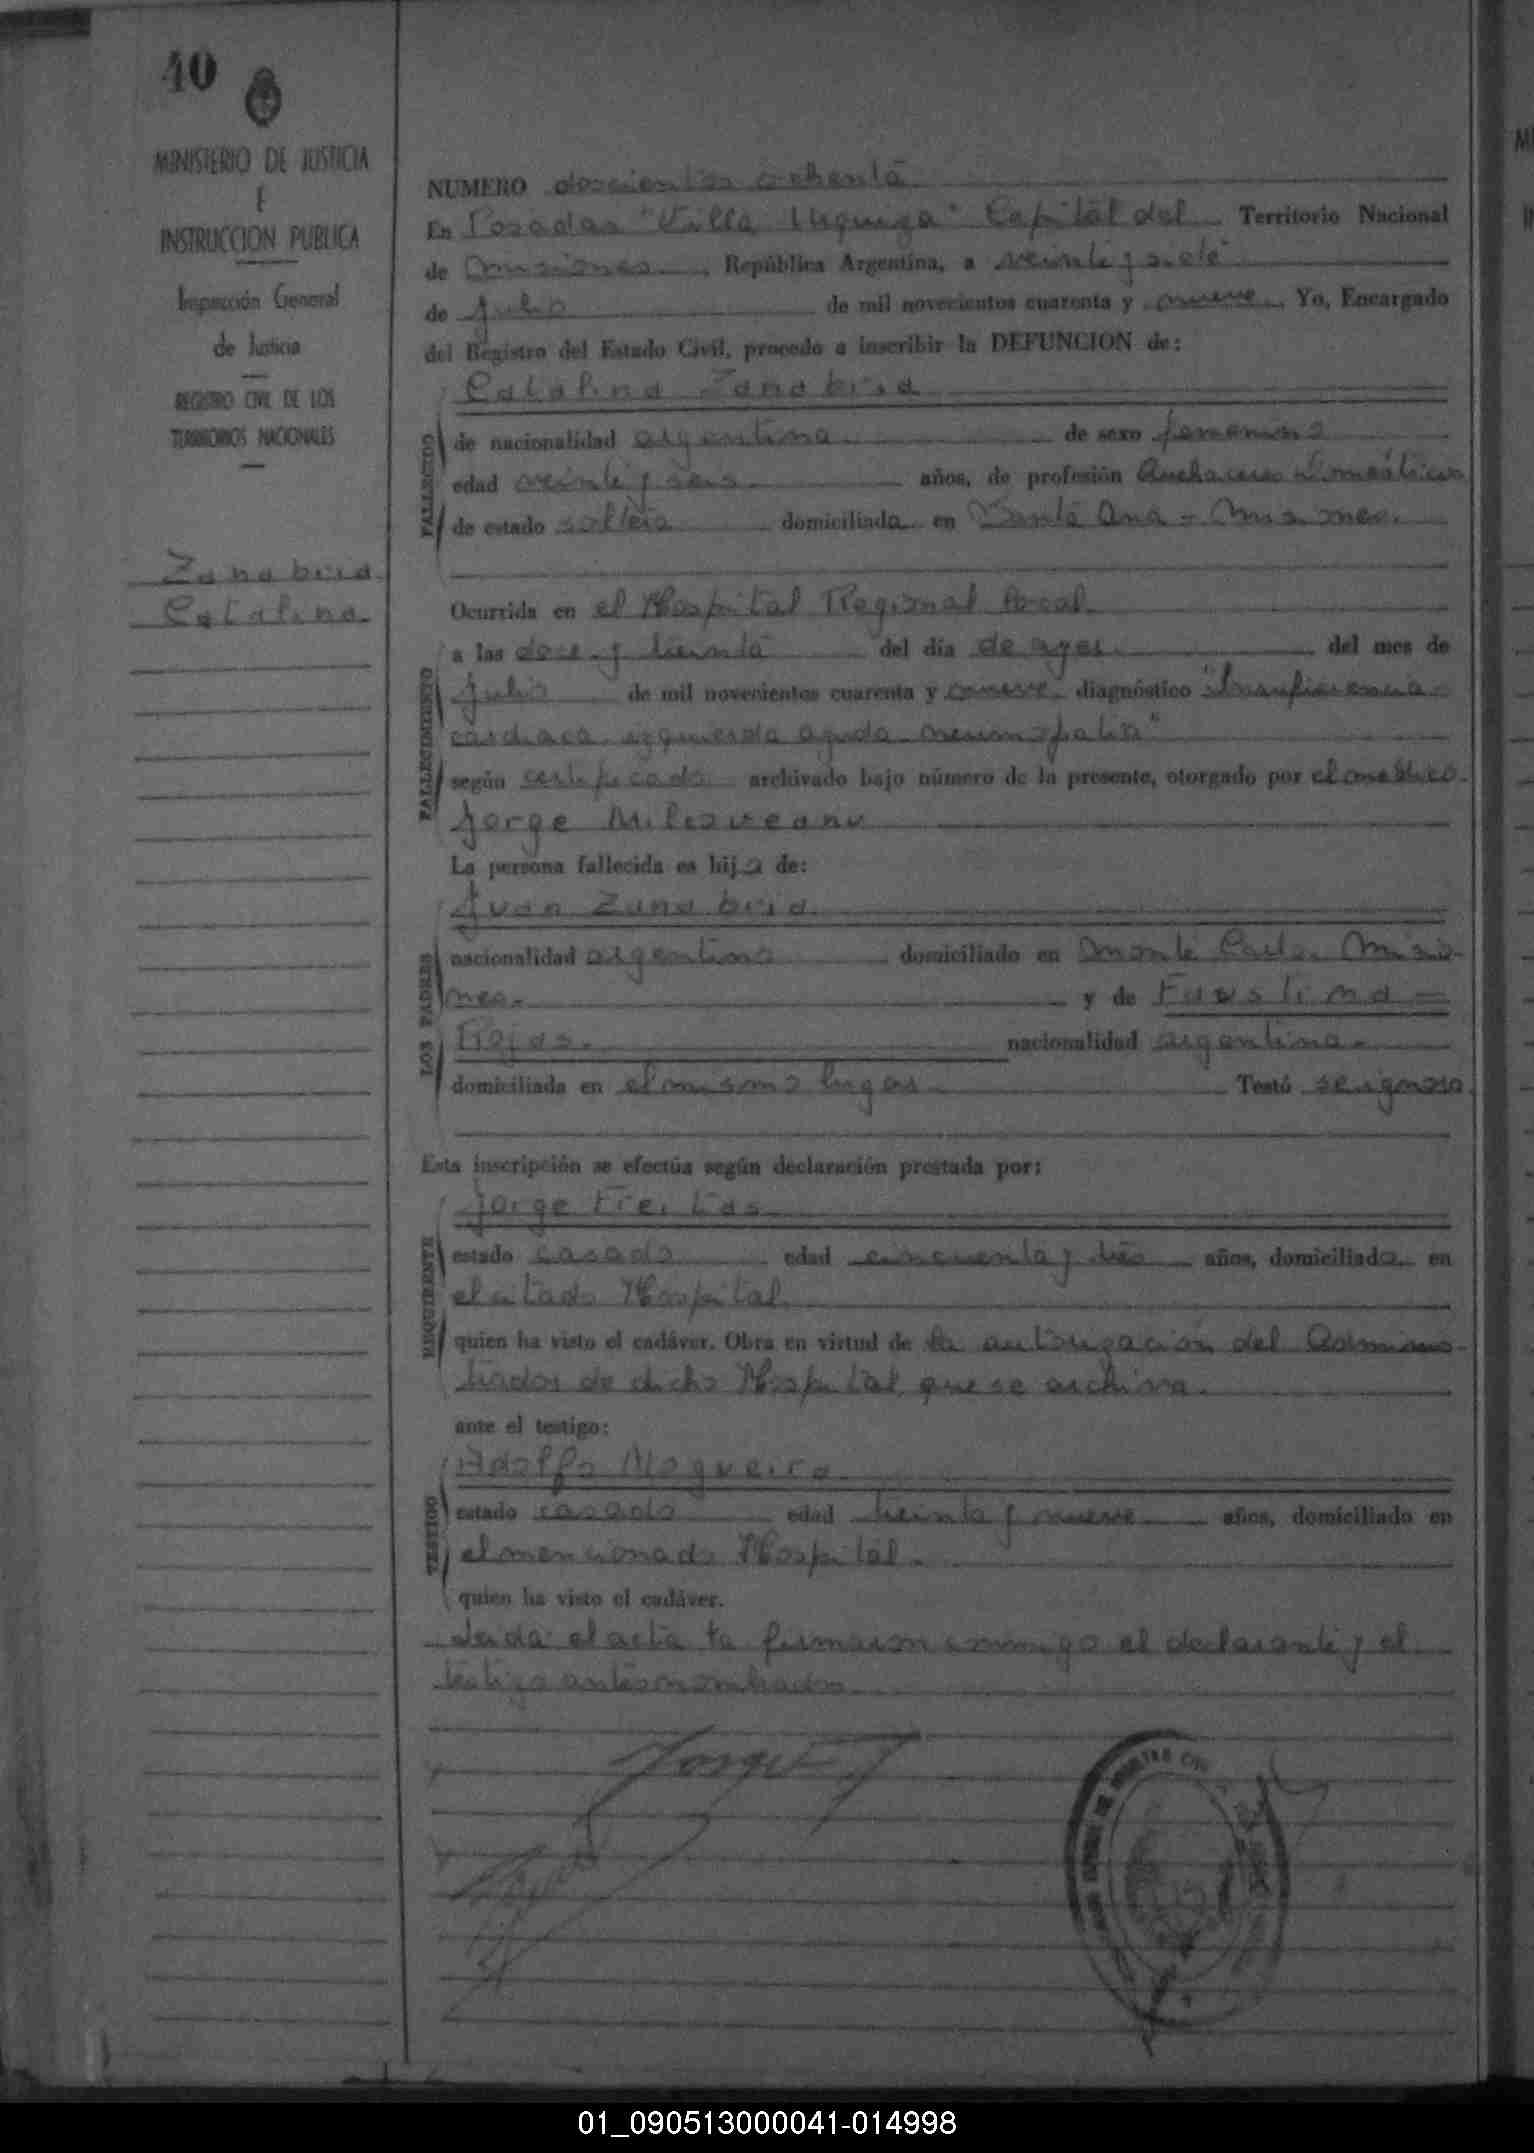 40
MINISTERIO DE JUSTICIA
E
INSTRUCCION PUBLICA
Inspección General
de Justicia
REGISTRO CIVIL DE LOS
TERRITORIOS NACIONALES
Zanabria
Catalina.
NUMERO doscientos ochenta
En Posadas "Villa Urquiza" Capital del Territorio Nacional
de Misiones República Argentina, a veintiy siete
de Julio de mil novecientos cuarenta y nueve. Yo, Encargado
del Registro del Estado Civil, procedo a inscribir la DEFUNCION de:
Catalina Zanabria
FALLECIDO
de nacionalidad argentina. de sexo femenino
edad veinti y seis. años, de profesión Quehaceres Domésticos
de estado soltera domiciliada en Santa Ana - Misiones.
Ocurrida en el Hospital Regional local.
FALLECIMIENTO
a las doce y treinta del día de ayer. del mes de
Julio de mil novecientos cuarenta y nueve. diagnóstico "Insuficiencia
cardiaca izquierda aguda neumopatia"
según certificado archivado bajo número de la presente, otorgado por el médico.
Jorge
La persona fallecida es hija de:
LOS PADRES
Juan Zanabria
nacionalidad argentino domiciliado en Monte Carlo. Misio-
nes. y de Faustina
Rojas. nacionalidad argentina.
domiciliada en el mismo lugar. Testó se ignora.
Esta inscripción se efectúa según declaración prestada por:
REQUIRENTE
Jorge Freitas
estado casado edad cincuenta y tres años, domiciliado en
el citado Hospital
quien ha visto el cadáver. Obra en virtud de la autorización del Adminis-
trador de dicho Hospital que se archiva.
ante el testigo:
TESTIGO
Adolfo Nogueira
estado casado edad treinta y nueve años, domiciliado en
el mencionado Hospital.
quien ha visto el cadáver.
Leida el acta la firmaron conmigo el declarante y el
testigo antes nombrados.
Jorge F
01_090513000041-014998